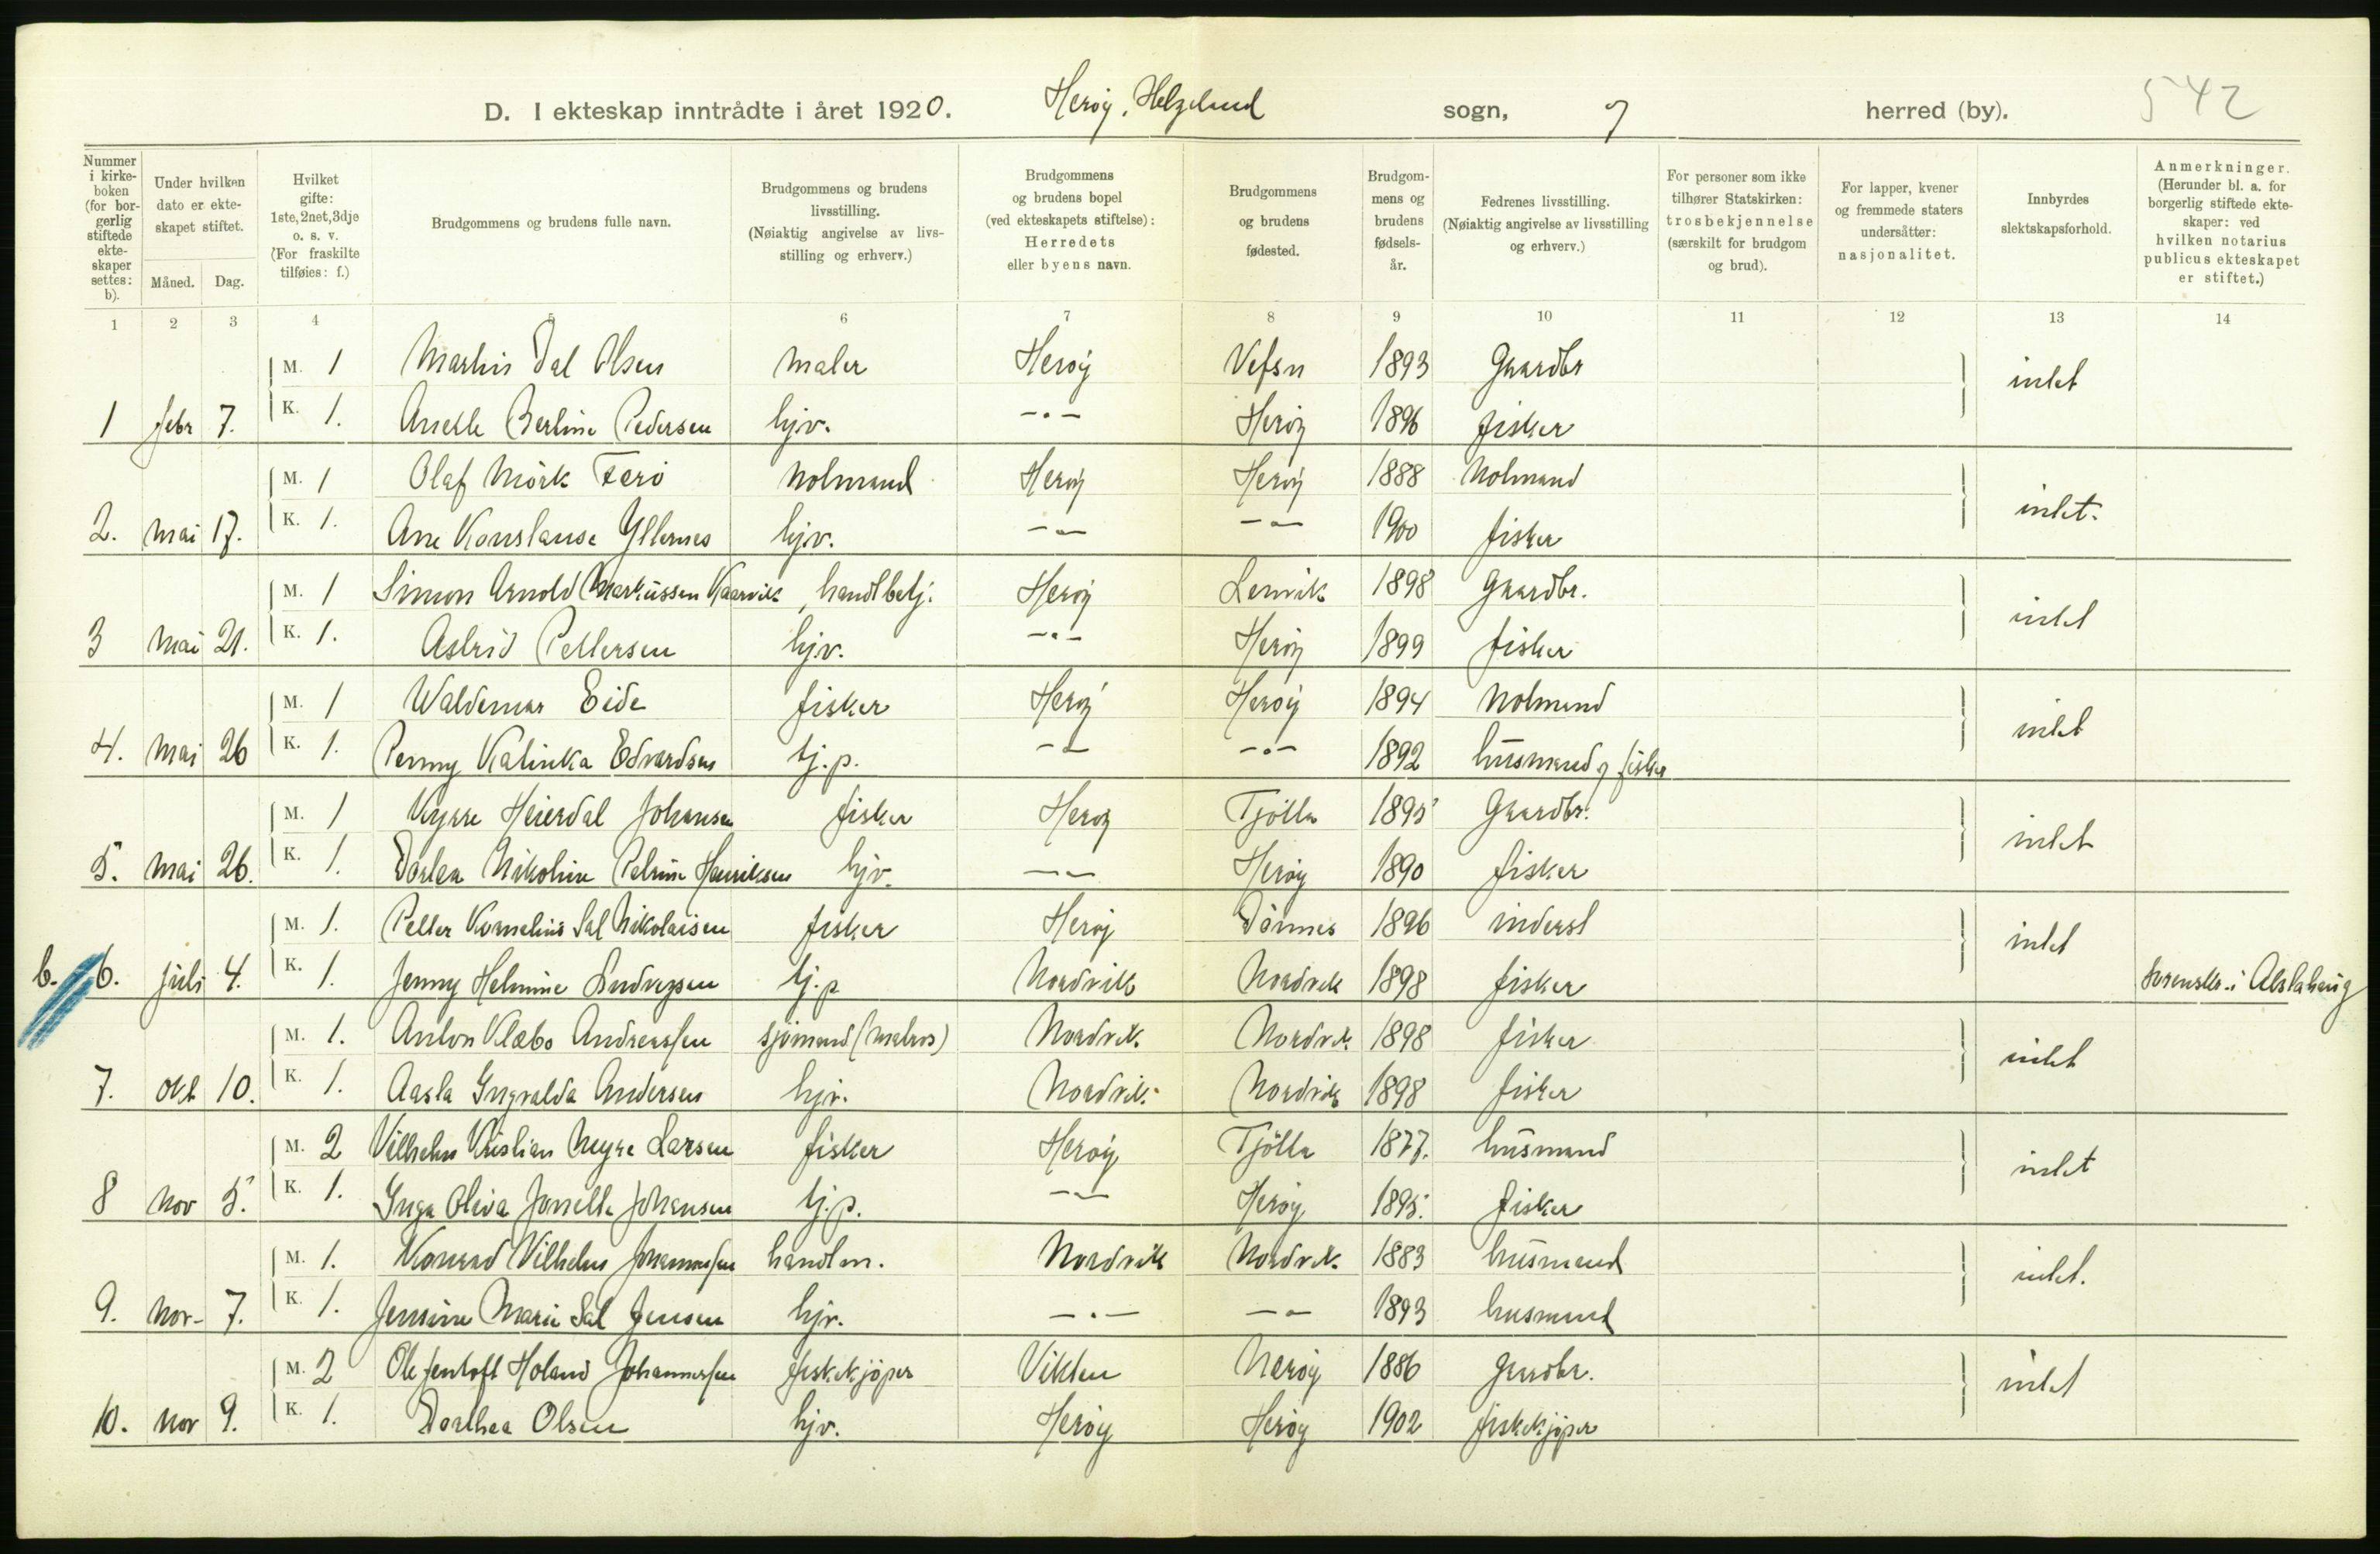 D. I ekteskap inntrådte i året 1920. Herøy, Helgeland sogn, herred (by). 542
Nummer i kirkeboken (for borgerlig stiftede ekteskaper settes: b).
Under hvilken dato er ekteskapet stiftet.
Måned. Dag.
Hvilket gifte: 1ste, 2net, 3dje o. s. v. (For fraskilte tilføies: f.)
Brudgommens og brudens fulle navn.
Brudgommens og brudens livsstilling. (Nøiaktig angivelse av livsstilling og erhverv.)
Brudgommens og brudens bopel (ved ekteskapets stiftelse): Herredets eller byens navn.
Brudgommens og brudens fødested.
Brudgommens og brudens fødselsår.
Fedrenes livsstilling. (Nøiaktig angivelse av livsstilling og erhverv.)
For personer som ikke tilhører Statskirken: trosbekjennelse (særskilt for brudgom og brud).
For lapper, kvener og fremmede staters undersåtter: nasjonalitet.
Innbyrdes slektskapsforhold.
Anmerkninger. (Herunder bl. a. for borgerlig stiftede ekteskaper: ved hvilken notarius publicus ekteskapet er stiftet.)
1 2 3 4 5 6 7 8 9 10 11 12 13 14
M. 1 Dal Olsen maler Herøy Vefsn 1893 Gaardbr intet
1 febr 7. K. 1. Anette Berline Pedersen hjv. -"- Herøy 1896 fisker
M. 1 Olaf Mörk Ferö Notmand Herøy Herøy 1888 Notmand intet.
2. mai 17. K. 1. Ane Konstanse hjv. -"- -"- 1900 fisker
M. 1 Simon Arnold Markussen Kaarvik handlbetj. Herøy Lenvik 1898 Gaardbr. intet
3 mai 21. K. 1. Astrid Pettersen hjv. -"- Herøy 1899 fisker
M. 1 Waldemar Eide fisker Herøy Herøy 1894 Notmand intet
4. mai 26 K. 1. Penny Katinka Edvardsen tj.p. -"- -"- 1892 husmand og fisker
M. 1 Heierdal Johansen fisker Herøy Tjötta 1895 Gaardbr. intet
5. mai 26. K. 1. Nikoline Petrine Henriksen hjv. -"- Herøy 1890 fisker
M. 1. Petter Kornelius Sal Nikolaisen fisker Herøy Dönnes 1896 inderst intet
b. 6. juli 4. K. 1. Jenny Helmine tj.p Nordvik Nordvik 1898 fisker sorenskr. i Alstahaug
M. 1. Anton Klæbo Andreassen sjömand (matros) Nordvik. Nordvik. 1898 fisker intet
7. okt 10. K. 1. Aasta Ingvalda Andersen hjv. Nordvik. Nordvik 1898 fisker
M. 2 Vilhelm Kristian Meyre Larsen fisker Herøy Tjötta 1877. husmand intet
8 nov 5. K. 1. Inga Oliva Jonette Johansen tj.p. -"- Herøy 1895. fisker
M. 1. Konrad Vilhelm Johannessen handlm. Nordvik Nordvik. 1883 husmand intet.
9. nov- 7. K. 1. Jensine Marie Sal Jensen hjv. -"- -"- 1893 husmand
M. 2 Ole Jentoft Holand Johannessen fiskekjöper Vikten Nærøy 1886 gaardbr. intet
10. nov 9. K. 1. Dorthea Olsen hjv. Herøy Herøy 1902 fiskekjöper